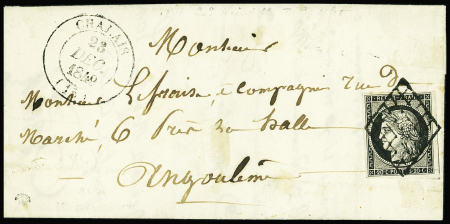 CHALAIS
23
DEC.
1849
(15)
Monsieur
Monsieur & compagnie rue du
Marché, 6 Près la halle
Angoulême
REPUB. FRANC.
20 C POSTES 20 C